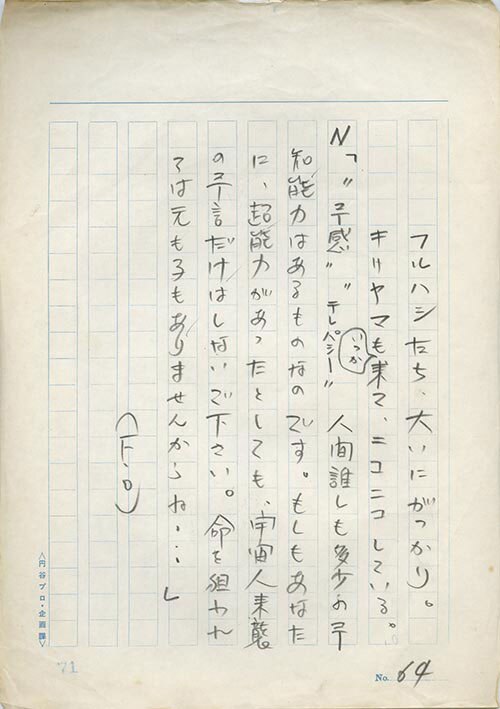 フルハシたち、大いにがっかり。
キリヤマもいつか来て、ニコニコしている。
N「〃予感〃〃テレパシー〃人間誰しも多少の予
知能力はあるものなのです。もしもあなた
に、超能力があったとしても、宇宙人来襲
の予言だけはしないで下さい。命を狙われ
ては元も子もありませんからね・・・」
(F・O)
〈円谷プロ・企画課〉
71
No. 64